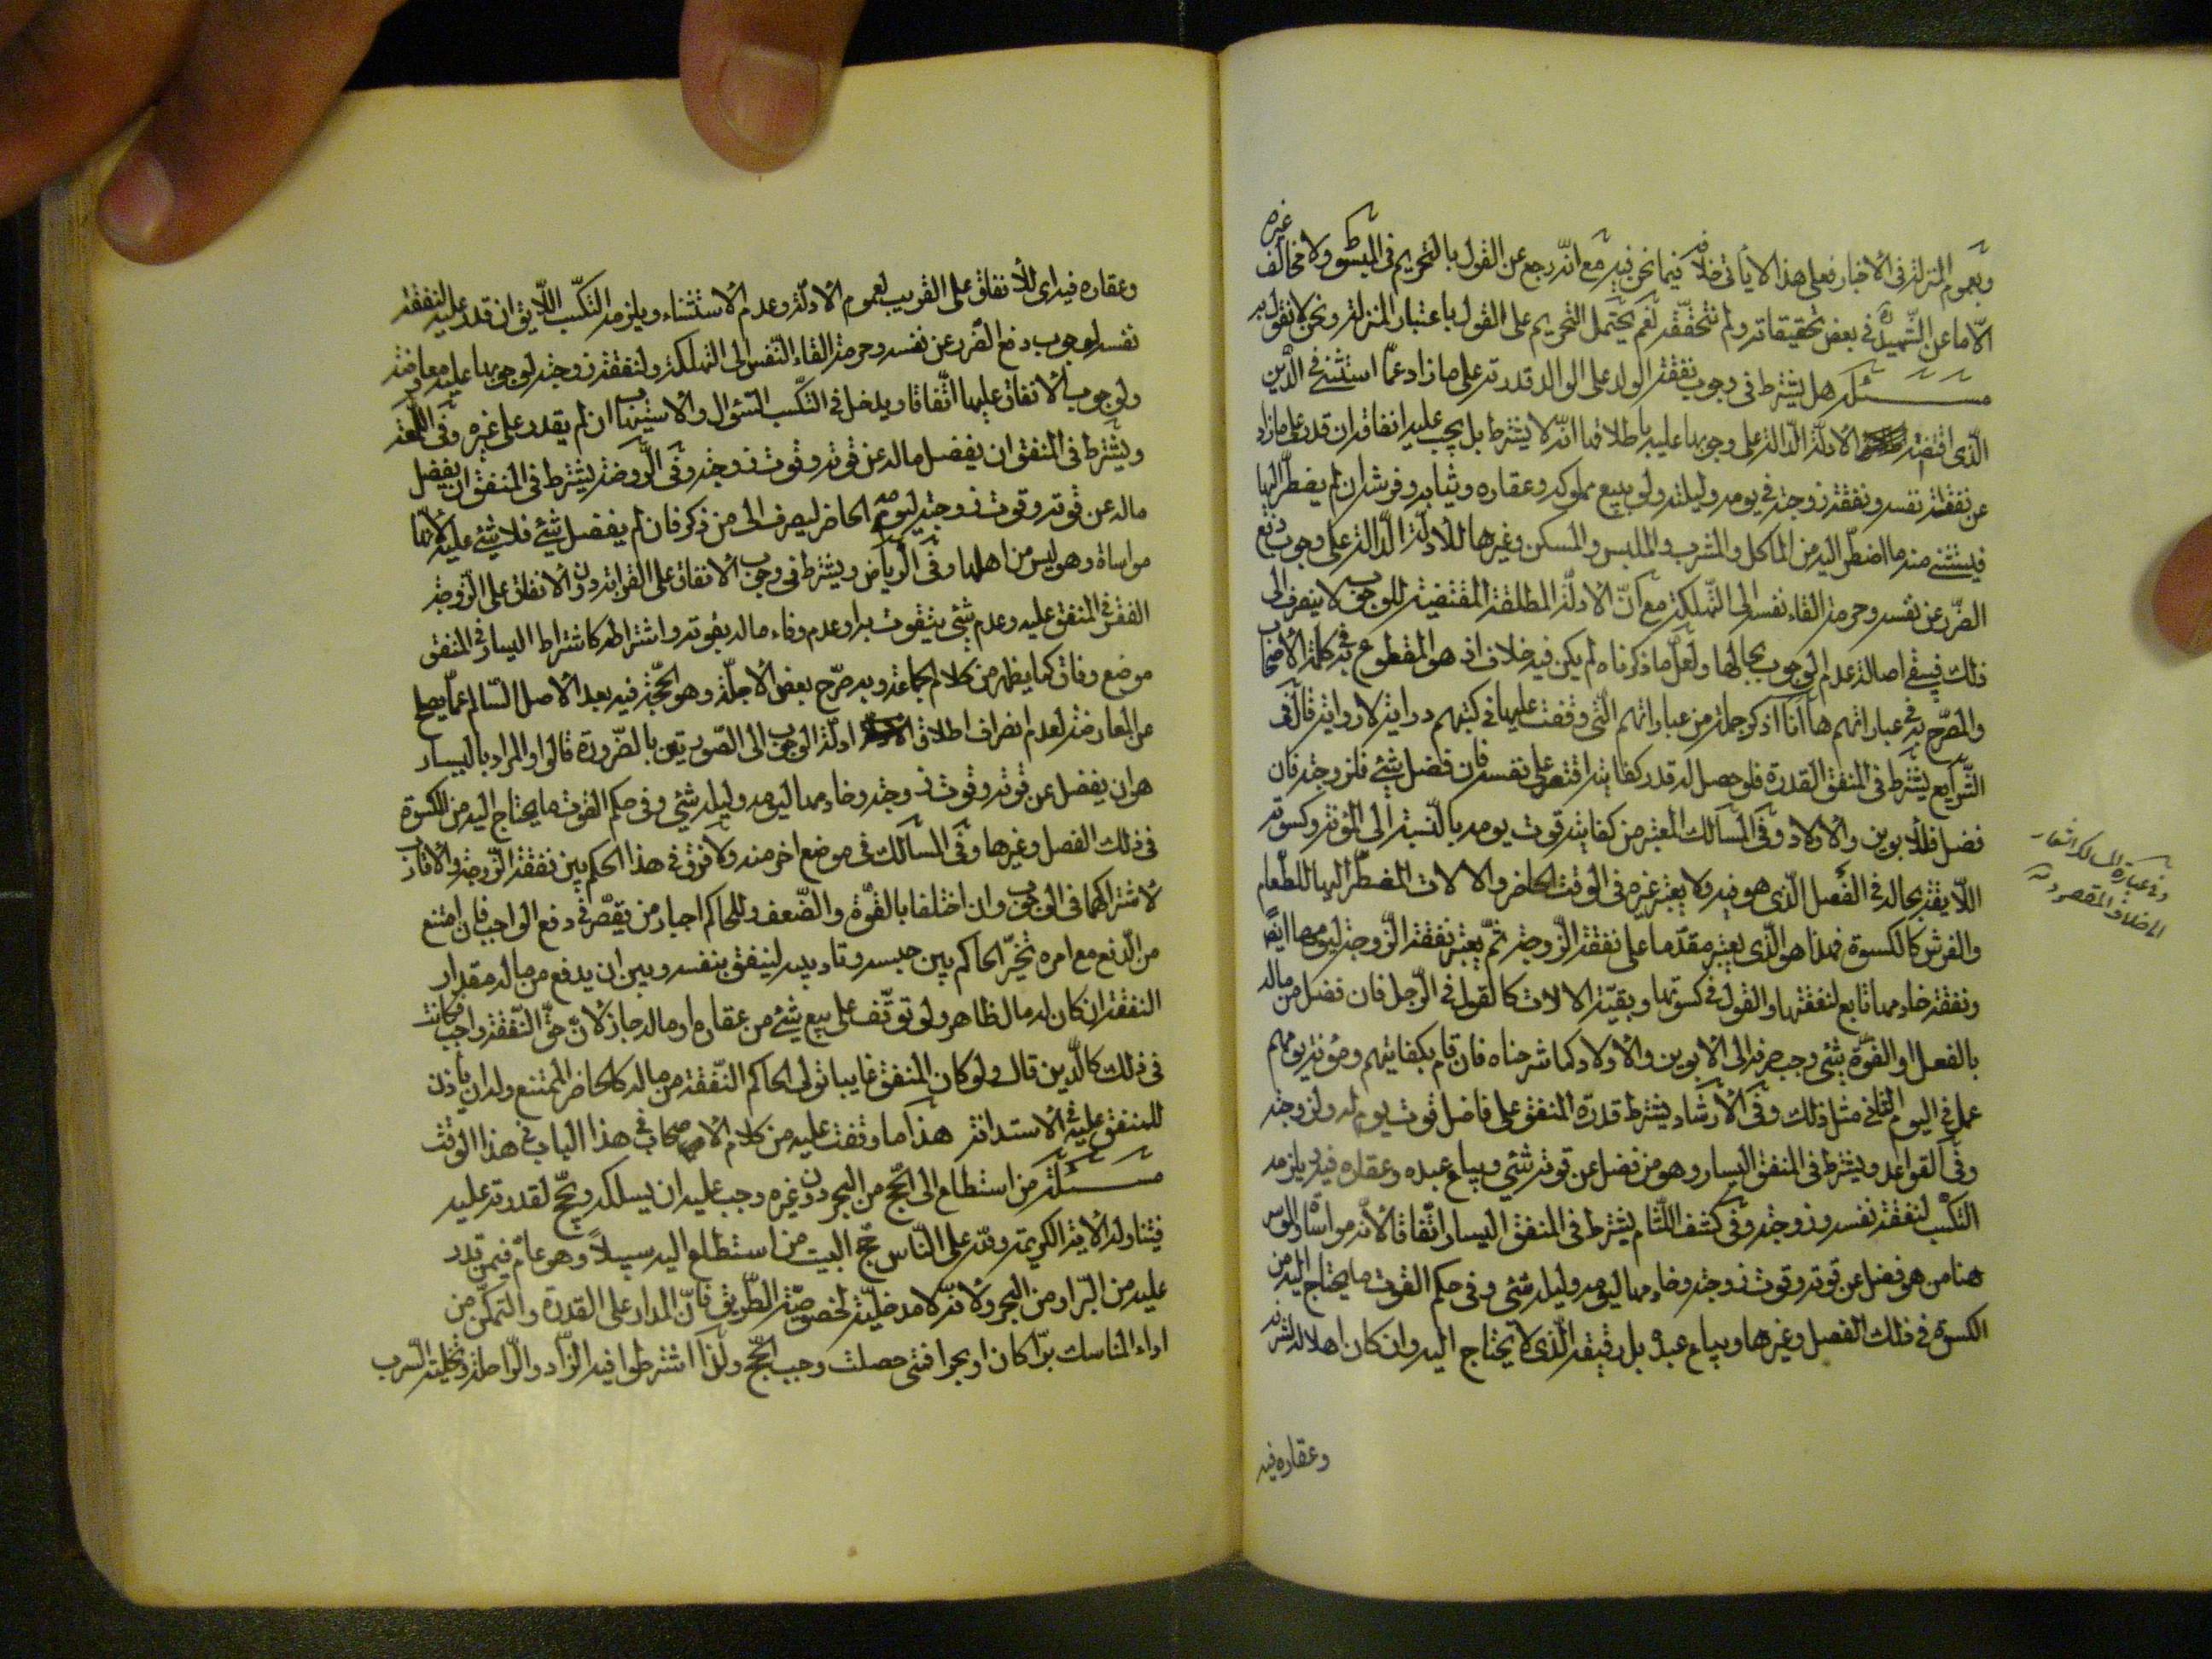 غيره
وبعموم المنزلة في الاخبار فعلى هذا لا يأتي خلافه فيما نحن فيه مع انّه رجع عن القول بالتحريم في المبسوط ولا مخالف
الّا ما عن الشّهيد في بعض تحقيقاته ولم نتحقّقه نعم يحتمل التحريم على القول باعتبار المنزلة ونحن لا نقول به
مسئلة هل يشترط في وجوب نفقة الولد على الوالد قدرته على ما زاد عمّا استثني في الدّين
الّذي اقتضته الادلّة الدّالة على وجوبها عليه باطلاقها انّه لا يشترط بل يجب عليه انفاقه ان قدر على ما زاد
عن نفقة نفسه ونفقة زوجته في يومه وليلته ولو ببيع مملوكه وعقاره وثيابه وفرشه ان لم يضطرّ اليها
فيستثنى منه ما اضطرّ اليه من المأكل والمشرب والملبس والمسكن وغيرها للادلّة الدّالة على وجوب دفع
الضّرر عن نفسه وحرمة القاء نفسه الى التهلكة مع انّ الادلّة المطلقة المقتضية للوجوب لا ينصرف الى
ذلك فيبقى اصالة عدم الوجوب بحالها ولعلّ ما ذكرناه لم يكن فيه خلاف اذ هو المقطوع به في كلمة الأصحاب
والمصرّح به في عباراتهم ها أنا اذكر جملة من عباراتهم الّتي وقفت عليها في كتبهم دراية لا رواية قال في
الشّرايع يشترط في المنفق القدرة فلو حصل له قدر كفايته اقتصر على نفسه فان فضل شئ فلزوجته فان
فضل فللأبوين والأولاد وفي المسالك المعتبر من كفايته قوت يومه بالنّسبة الى المؤنة وكسوته
اللّايقة بحاله في الفصل الّذي هو فيه ولا يعتبر غيره في الوقت الحاضر والالات المضطرّ اليها للطّعام
والفرش كالكسوة فهذا هو الّذي يعتبر مقدّما على نفقة الزّوجة ثمّ يعتبر نفقة الزّوجة ليومها ايضًا
ونفقة خادمها تابع لنفقتها والقول في كسوتها وبقيّة الالات كالقول في الرّجل فان فضل من ماله
بالفعل او القوّة شئ وجب صرفه الى الأبوين والأولاد كما شرحناه فان قام بكفايتهم ومؤنة يومهم
عمل في اليوم الثاني مثل ذلك وفي الأرشاد يشترط قدرة المنفق على فاضل قوت يوم له ولزوجته
وفي القواعد ويشترط في المنفق اليسار وهو من فضل عن قوته شئ ويباع عبده وعقاره فيه ويلزمه
التكسّب لنفقة نفسه وزوجته وفي كشف اللّثام يشترط في المنفق اليسار اتّفاقا لأنّه مواساة والموسر
هنا من هو فضل عن قوته وقوت زوجته وخادمها ليومه وليلته شئ وفي حكم القوت ما يحتاج اليه من
الكسوة في ذلك الفصل وغيرها ويباع عبده بل رقيقه الّذي لا يحتاج اليه وان كان اهلا له لشرفه
وعقاره فيه
وفي عبارة المسالك اشعار
وعقاره فيه اي للأنفاق على القريب لعموم الأدلّة وعدم الأستثناء ويلزمه التكسّب اللّايق ان قدر عليه لنفقة
نفسه لوجوب دفع الضّرر عن نفسه وحرمة القاء النّفس الى التهلكة ولنفقة زوجته لوجوبها عليه معاوضة
ولوجوب الأنفاق عليها اتّفاقا ويدخل في التكسّب السّؤال والأستيهاب ان لم يقدر على غيره وفي اللّمعة
ويشترط في المنفق ان يفضل ماله عن قوته وقوت زوجته وفي الرّوضة يشترط في المنفق ان يفضل
ماله عن قوته وقوت زوجته ليومه الحاضر ليصرف الى من ذكر فان لم يفضل شئ فلا شئ عليه لأنّها
مواساة وهو ليس من اهلها وفي الرّياض ويشترط في وجوب الأنفاق على القرابة دون الأنفاق على الزّوجة
الفقر في المنفق عليه وعدم شئ يتقوّت به او عدم وفاء ماله بقوته واشتراطه كاشتراط اليسار في المنفق
موضع وفاق كما يظهر من كلام الجماعة وبه صرّح بعض الأجلّة وهو الحجّة فيه بعد الأصل السّالم عمّا يصلح
من المعارضة لعدم انصراف اطلاق ادلّة الوجوب الى الصّورتين بالضّرورة قالوا والمراد باليسار
هو ان يفضل عن قوته وقوت زوجته وخادمها ليومه وليلته شئ وفي حكم القوت ما يحتاج اليه من الكسوة
في ذلك الفصل وغيرها وفي المسالك في موضع اخر منه ولا فرق في هذا الحكم بين نفقة الزّوجة والأقارب
لأشتراكهما في الوجوب وان اختلفا بالقوّة والضّعف وللحاكم اجبار من يقصّر في دفع الواجب فان امتنع
من الدّفع مع امره تخيّر الحاكم بين حبسه وتاديبه لينفق بنفسه وبين ان يدفع من ماله مقدار
النفقة ان كان له مال ظاهر ولو توقّف على بيع شئ من عقاره او ماله جاز لأنّ حقّ النّفقة واجب فكانت
في ذلك كالدّين قال ولو كان المنفق غايبا تولى الحاكم النّفقة من ماله كالحاضر الممتنع وله ان يأذن
للمنفق عليه في الأستدانة هذا ما وقفت عليه من كلام الاصحاب في هذا الباب في هذا الوقت
مسئلة من استطاع الى الحجّ من البحر دون غيره وجب عليه ان يسلكه ويحجّ لقدرته عليه
فيتناوله الأية الكريمة ولله على النّاس حجّ البيت من استطاع اليه سبيلاً وهو عامّ فيمن قدر
عليه من البرّ او من البحر ولأنّه لا مدخليّة لخصوصيّة الطّريق فانّ المدار على القدرة والتمكّن من
اداء المناسك برّا كان او بحرا فمتى حصلت وجب الحجّ ولذا اشترطوا فيه الزّاد والرّاحلة وتخلية السّرب